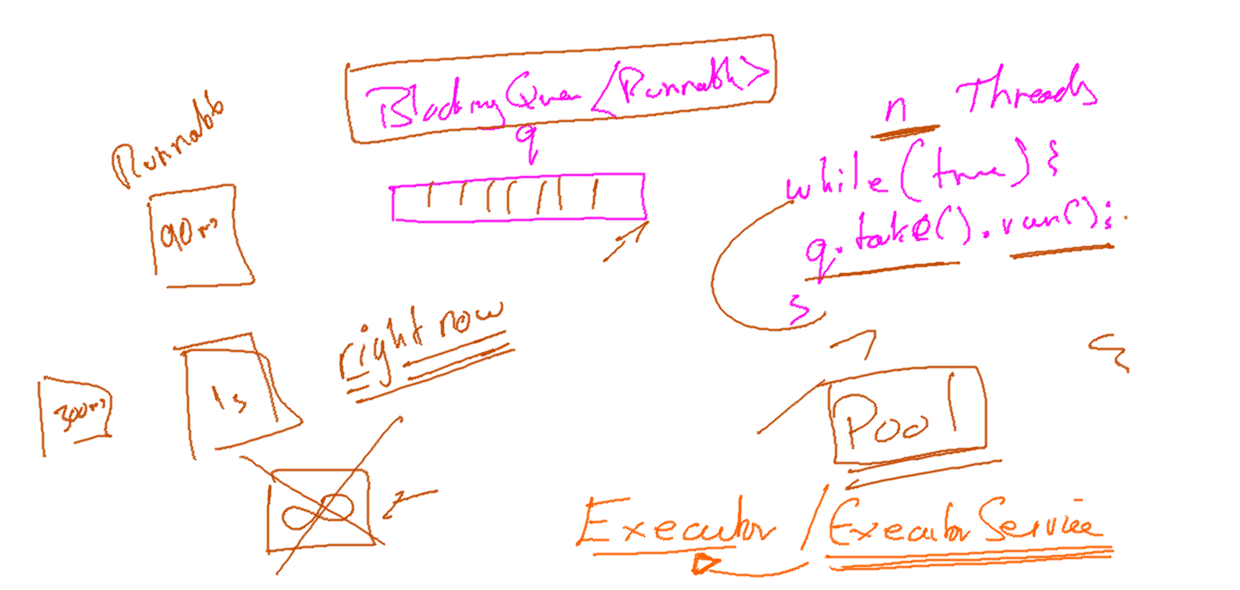 BlockingQueue<Runnable>
q
n Threads
while(true){
q.take().run();
}
Runnable
90ms
right now
300ms
1s
∞
Pool
Executor / ExecutorService